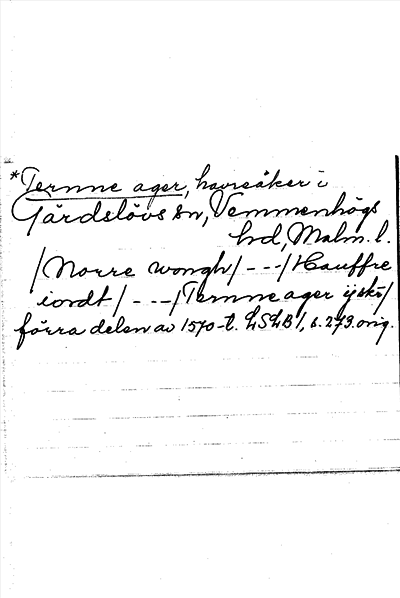 *Ternne ager, havreåker i
Gärdslövs sn, Vemmenhögs
hd, Malm. l.
/Norre wongh/ - - -/Hauffre
iordt/ - - -/Ternne ager ijsk/
förra delen av 1570-t. LSLB1, s. 273. orig.